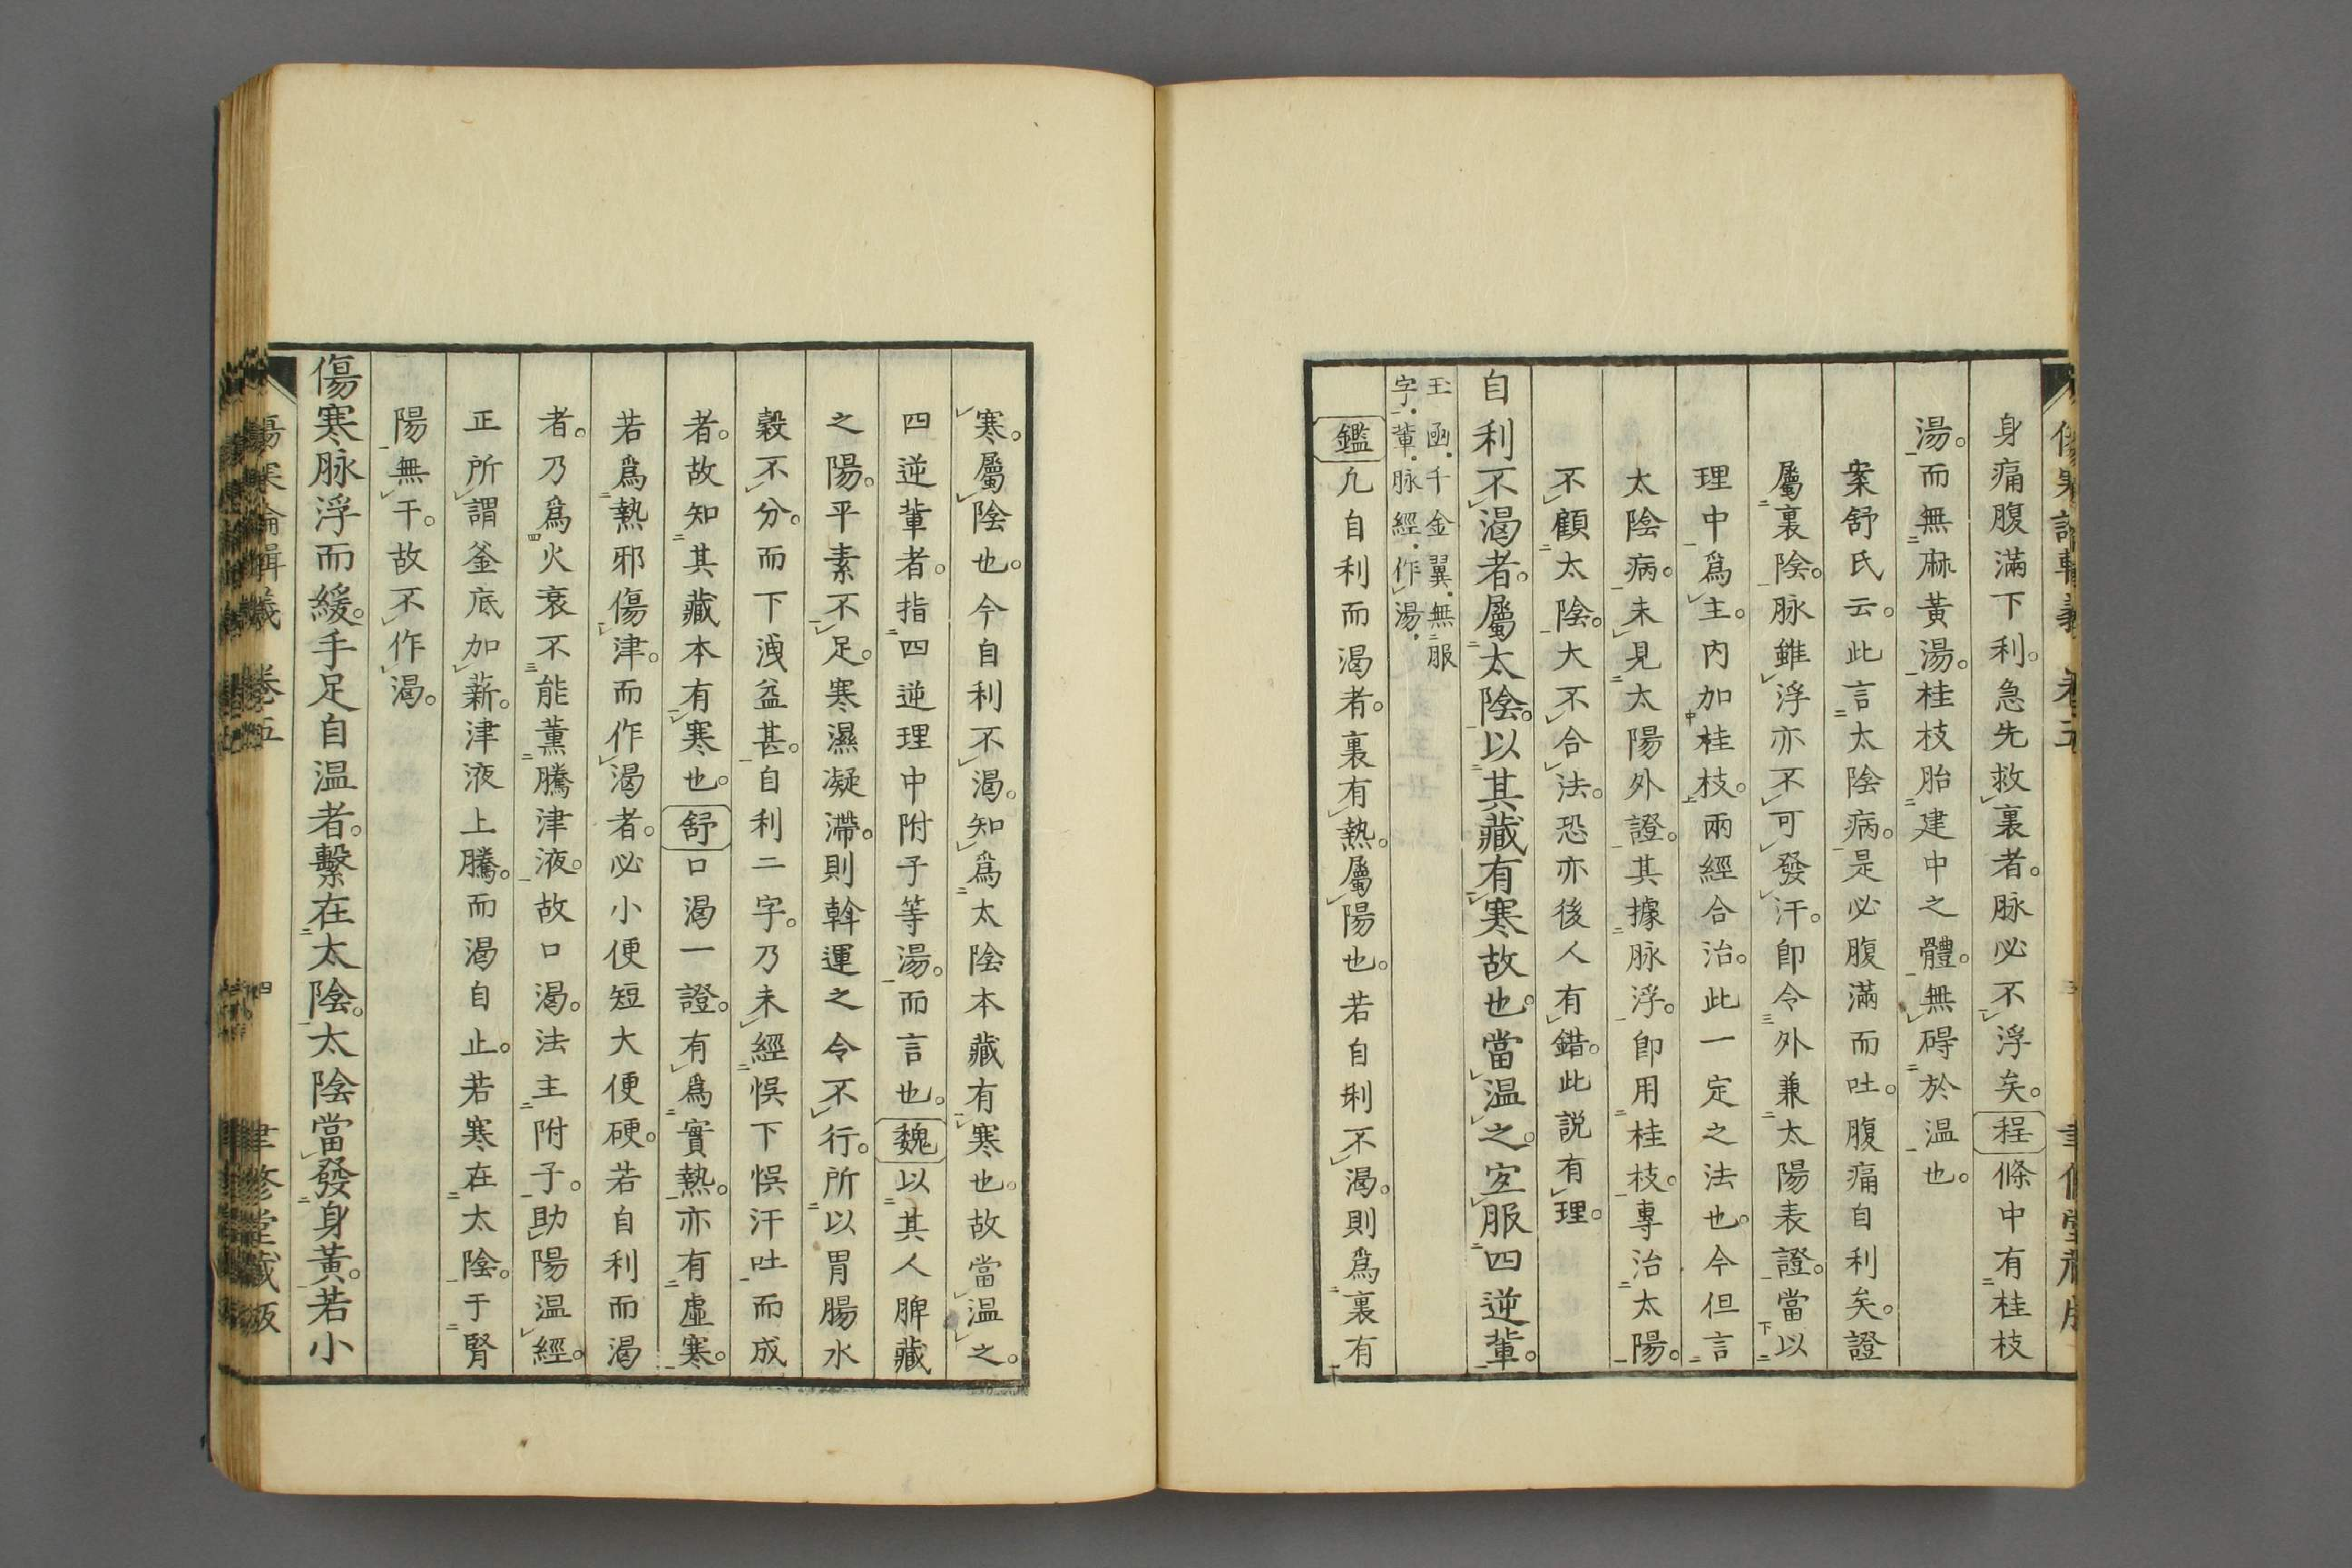 身痛腹滿下利。急先救裏者。脉必不浮矣。程條中有桂枝
湯。而無麻黃湯。桂枝胎建中之體。無碍於温也。
案舒氏云。此言太陰病。是必腹滿而吐。腹痛自利矣。證
屬裏陰。脉雖浮亦不可發汗。即令外兼太陽表證。當以
理中爲主。内加桂枝。兩經合治。此一定之法也。今但言
太陰病。未見太陽外證。其據脉浮。即用桂枝。專治太陽。
不顧太陰。大不合法。恐亦後人有錯。此説有理。
自利不渴者。屬太陰。以其藏有寒故也。當温之。宐服四逆輩。
玉函。千金翼。無服
字。輩。脉經。作湯。
鑑凡自利而渴者。裏有熱。屬陽也。若自利不渴。則爲裏有
寒。屬陰也。今自利不渴。知爲太陰本藏有寒也。故當温之。
四逆輩者。指四逆理中附子等湯。而言也。魏以其人脾藏
之陽。平素不足。寒濕凝滯。則斡運之令不行。所以胃腸水
穀不分。而下洩益甚。自利二字。乃未經悞下悞汗吐而成
者。故知其藏本有寒也。舒口渴一證。有爲實熱。亦有虛寒。
若爲熱邪傷津。而作渴者。必小便短大便硬。若自利而渴
者。乃爲火衰不能薰騰津液。故口渴。法主附子。助陽温經。
正所謂釜底加薪。津液上騰。而渴自止。若寒在太陰。于腎
陽無干。故不作渴。
傷寒脉浮而緩。手足自温者。繫在太陰。太陰當發身黃。若小
傷寒論輯義 卷五 四 聿修堂藏版